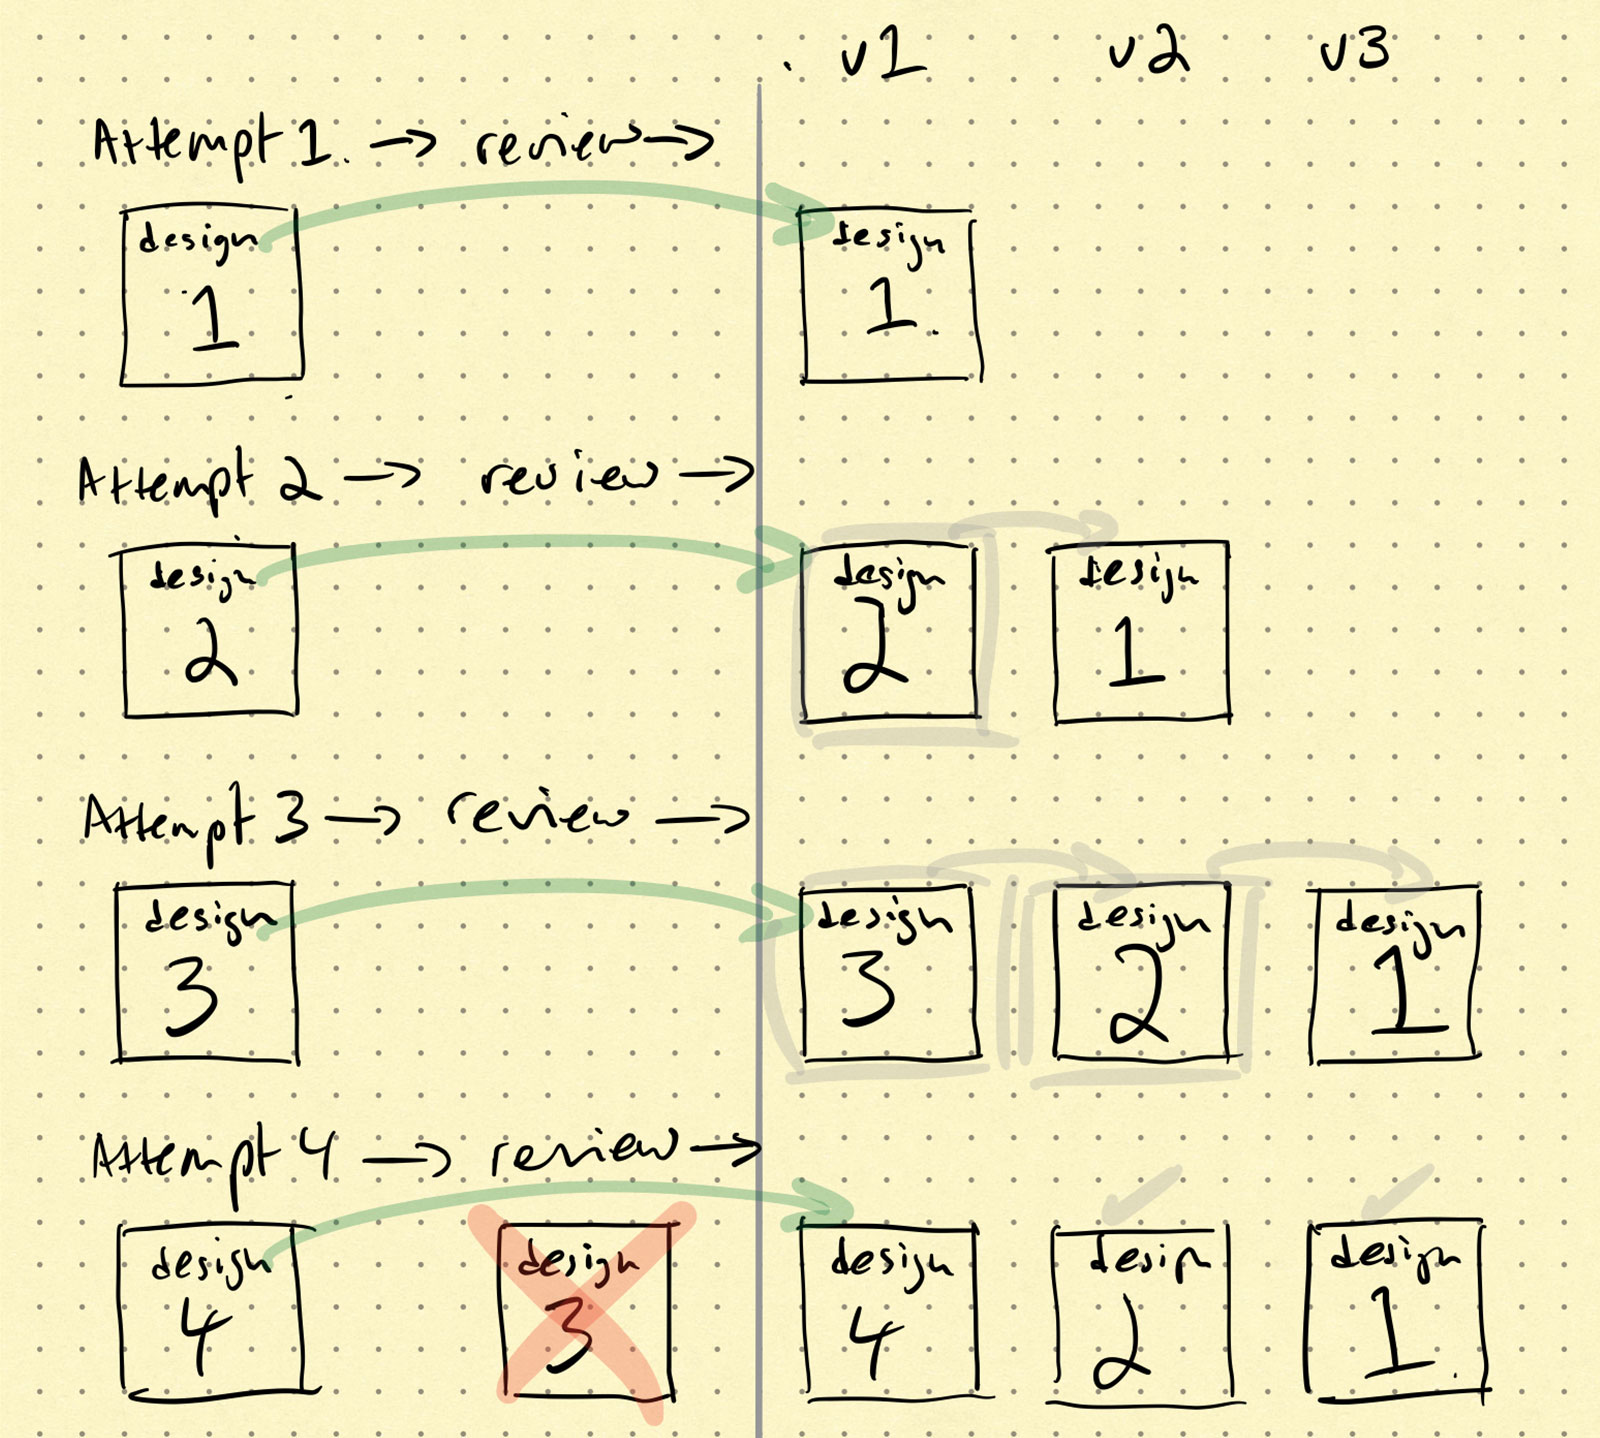 v1 v2 v3
Attempt 1. → review →
design design
1 1.
Attempt 2 → review →
design design design
2 2 1
Attempt 3 → review →
design design design design
3 3 2 1
Attempt 4 → review →
design design design design design
4 3 4 2 1